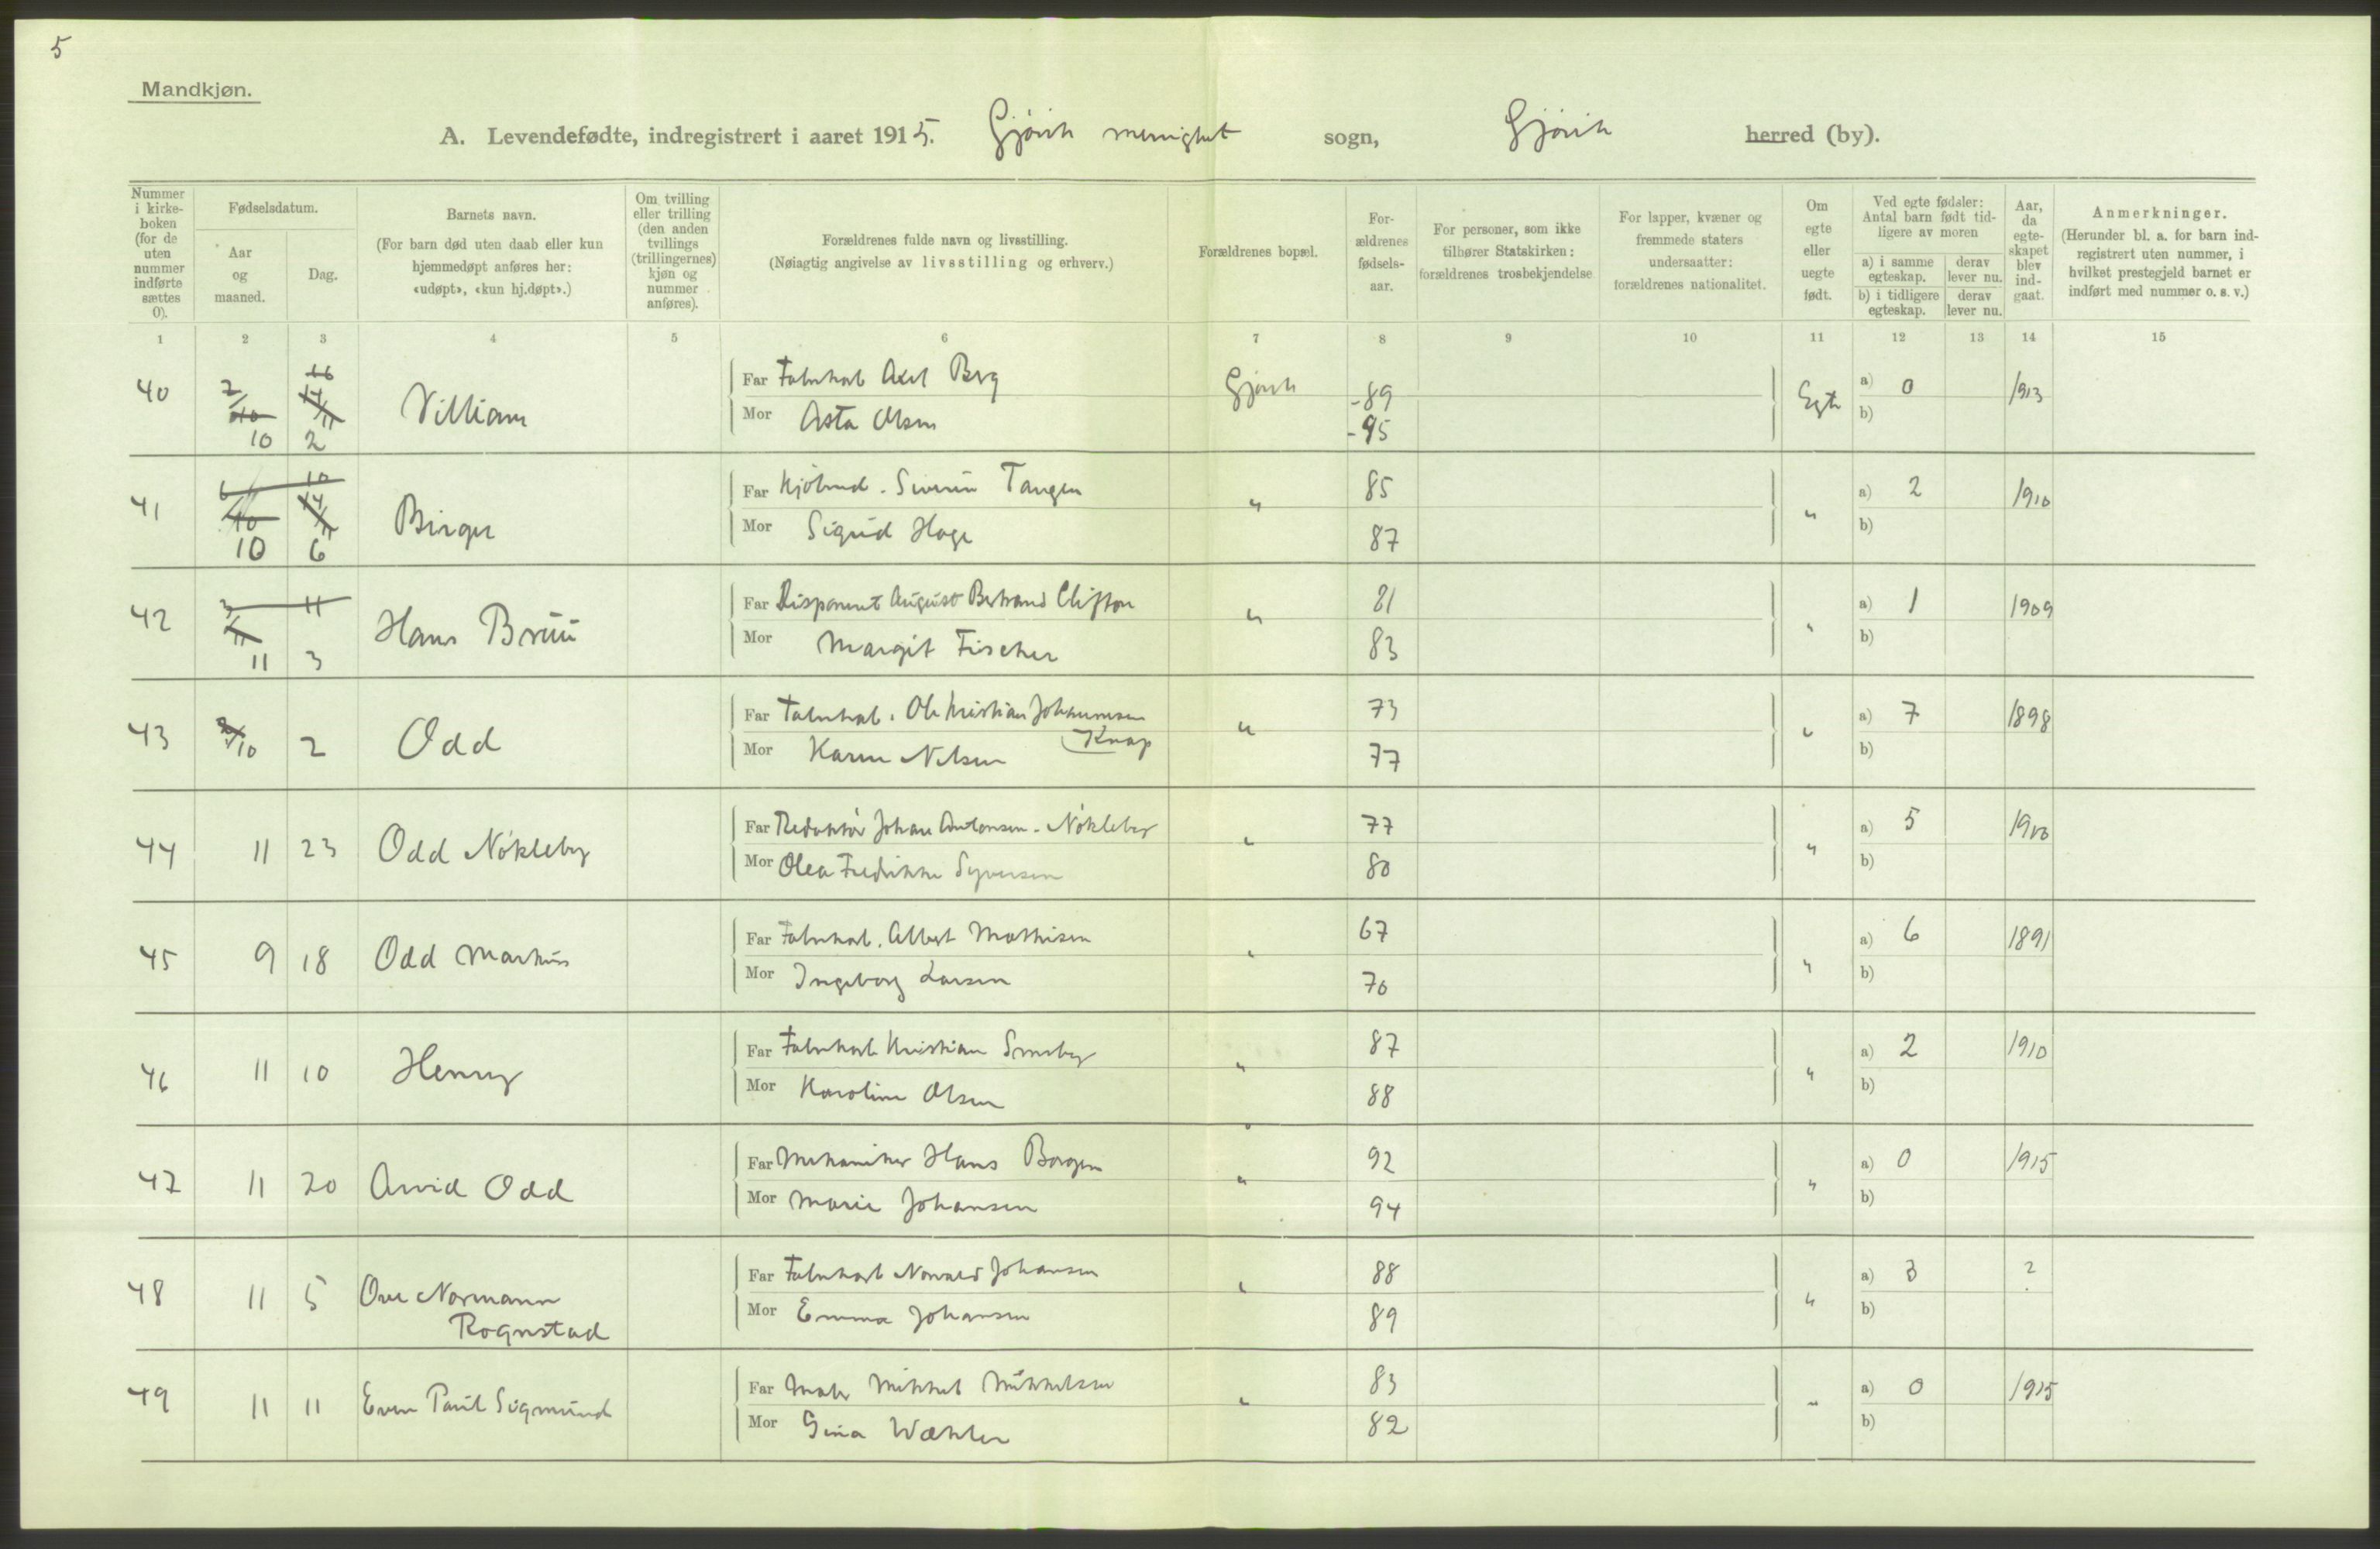 5
Mandkjøn.
A. Levendefødte, indregistrert i aaret 1915. Gjøvik menighet sogn, Gjøvik herred (by).
Nummer i kirkeboken (for de uten nummer indførte sættes 0).
Fødselsdatum.
Aar og maaned.
Dag.
Barnets navn.
(For barn død uten daab eller kun hjemmedøpt anføres her: «udøpt», «kun hj.døpt».)
Om tvilling eller trilling (den anden tvillings (trillingernes) kjøn og nummer anføres).
Forældrenes fulde navn og livsstilling.
(Nøiagtig angivelse av livsstilling og erhverv.)
Forældrenes bopæl.
Forældrenes fødselsaar.
For personer, som ikke tilhører Statskirken: forældrenes trosbekjendelse
For lapper, kvæner og fremmede staters undersaatter: forældrenes nationalitet.
Om egte eller uegte født.
Ved egte fødsler: Antal barn født tidligere av moren
a) i samme egteskap. derav lever nu.
b) i tidligere egteskap. derav lever nu.
Aar, da egteskapet blev indgaat.
Anmerkninger.
(Herunder bl. a. for barn indregistrert uten nummer, i hvilket prestegjeld barnet er indført med nummer o. s. v.)
1 2 3 4 5 6 7 8 9 10 11 12 13 14 15
40 10 2 Villiam Far Fabrikarb Axel Berg Gjøvik -89 Egte a) 0 1913
Mor Asta Olsen -95 b)
41 10 6 Birger Far Severin Tangen " 85 " a) 2 1910
Mor Sigrid Hage 87 b)
42 11 3 Hans Bruu Far Disponent August Bertrand Clifton " 81 " a) 1 1909
Mor Margit Fischer 83 b)
43 10 2 Odd Far Fabrikarb. Ole Kristian Johannesen Knap " 73 " a) 7 1898
Mor Karen Nilsen 77 b)
44 11 23 Odd Nøkleby Far Redaktør Johan Antonsen - Nøkleby " 77 " a) 5 1900
Mor Olea Fredrikke Syversen 80 b)
45 9 18 Odd Markus Far Fabrikarb. Albert Mathisen " 67 " a) 6 1891
Mor Ingeborg Larsen 70 b)
46 11 10 Henry Far Fabrikarb Kristian Smeby " 87 " a) 2 1910
Mor Karoline Olsen 88 b)
47 11 20 Arvid Odd Far Mekaniker Hans Borgen " 92 " a) 0 1915
Mor Marie Johansen 94 b)
48 11 5 Ove Normann Rognstad Far Fabrikarb Johansen " 88 " a) 3 ?
Mor Emma Johansen 89 b)
49 11 11 Even Paul Sigmund Far Maler Mikkel Mikkelsen " 83 " a) 0 1915
Mor Gina Wæhler 82 b)